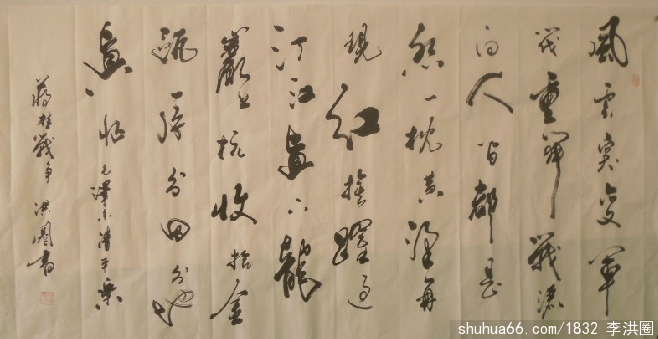 風雲突變軍
閥重開戰灑
向人间都是
怨一枕黄粱再
現红旗躍過
汀江直下龍
巖上杭收拾金
甌一片分田分地
真忙 毛澤东清平乐
蒋桂戰争 洪圈书
shuhua66.com/1832 李洪圈